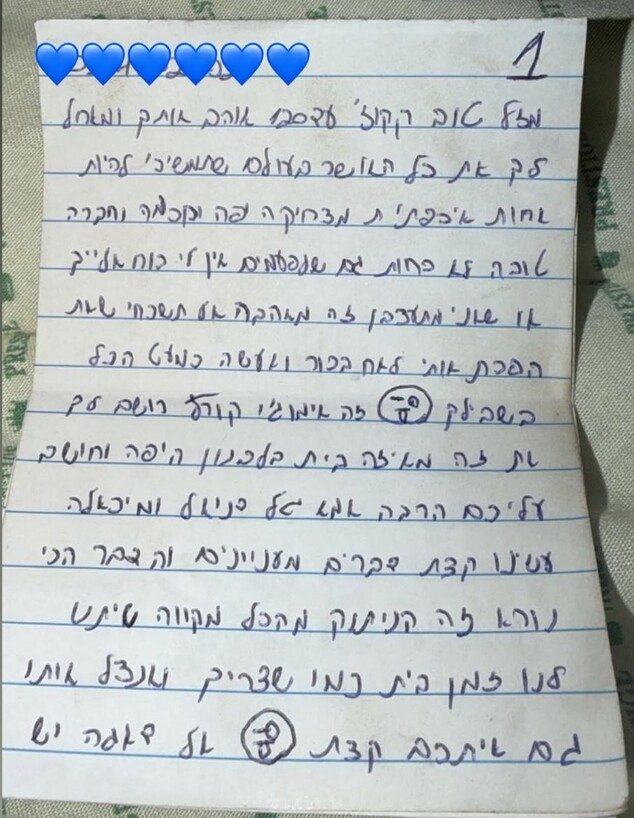 1
מזל טוב רקקוז' עכסברו אוהב אותך ומאחל
לך את כל האושר בעולם שתמשיכי להיות
אחות איכפתי ת מצחיקה יפה וחכמה וחברה
טובה לא פחות גם שלפעמים אין לי כוח אלייך
או שאני מתעצבן זה מאהבה אל תשכחי שאת
הפכת אותי לאח בכור ואעשה כמעט הכל
בשבילך זה אימוג'י קורע רושם לך
את זה מאיזה בית בלבנון היפה וחושב
עליכם הרבה אמא גל דניאל ומיכאלה
עשינו קצת דברים מעניינים והדבר הכי
נורא זה הניתוק מהכל מקווה שיתנו
לנו זמן בית כמו שצריך ואנצל אותו
גם איתכם קצת אל דאגה יש